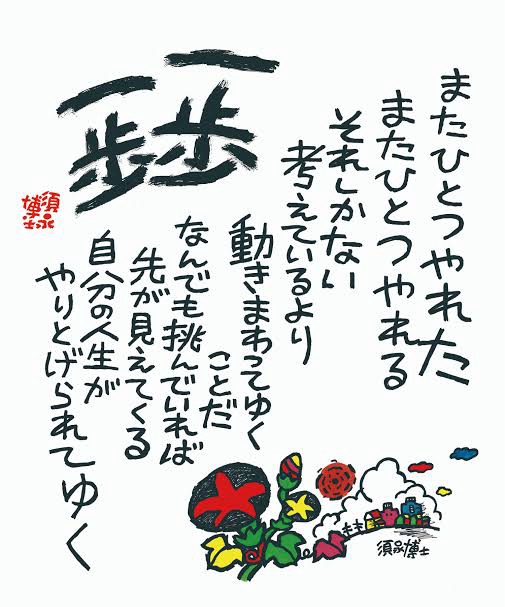 一歩一歩
またひとつやれた
またひとつやれる
それしかない
考えているより
動きまわってゆく
ことだ
なんでも挑んでいれば
先が見えてくる
自分の人生が
やりとげられてゆく
須永博士
須永博士